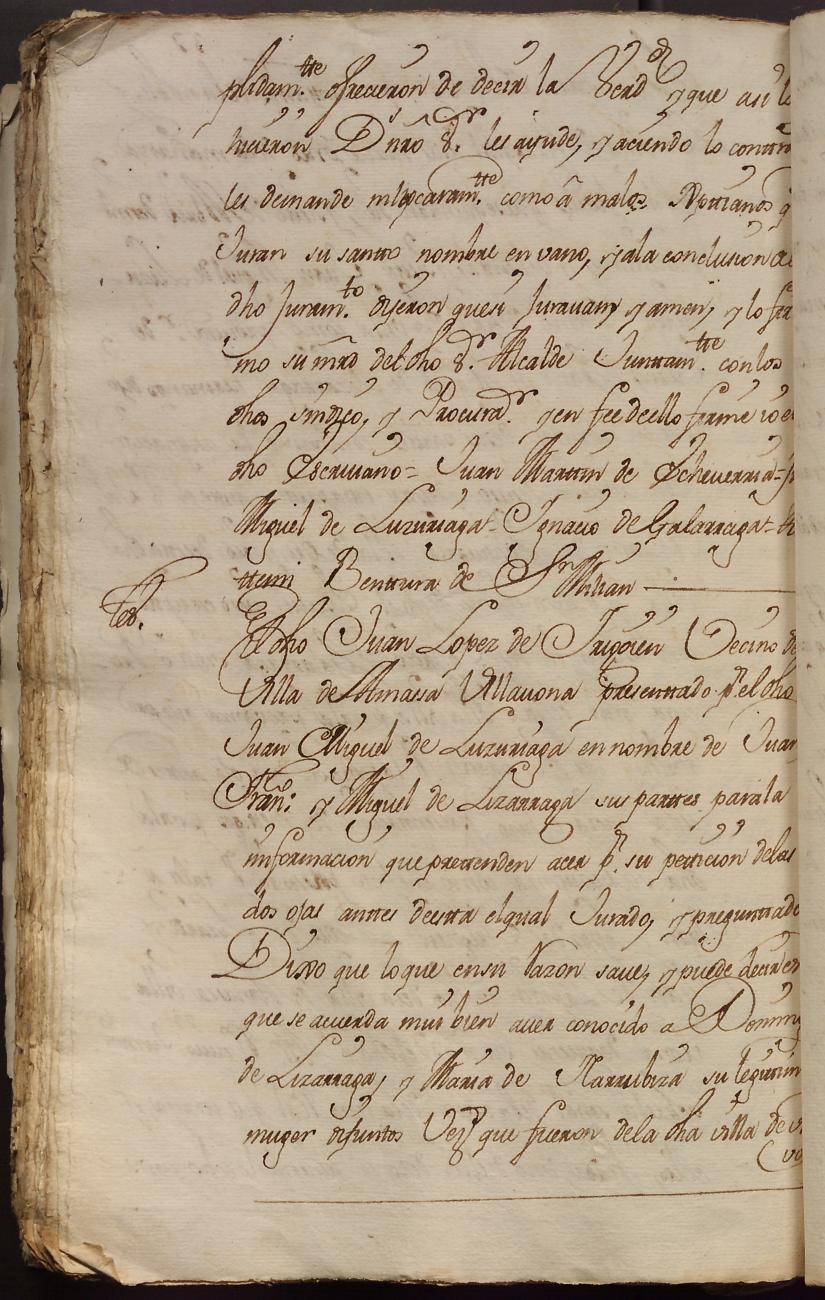 plidam.tte ofrecieron de decir la Verdd y que asi lo
hicieron Ds nro Sr. les ayude, y aciendo lo contra
les demande mal y caram.tte como â malos Xpttianos q
Juran su santto nombre en vano, y ala conclusion de
dho Juram.to dijeron que si Juravan y amen, y lo fir
mo su mrd del dho Sr. Alcalde Junttam.tte con los
dhos sindico, y Procurador. y en fee de ello firme io el
dho Escrivano = Juan Martin de Echeverria =
Miguel de Luzuriaga = Ignacio de Galarraga =
ttemi Benttura de Sn Millan
Tes.
El dho Juan Lopez de Irigoien Vecino de
Villa de Amassa Villavona presenttado pr. el dho
Juan Miguel de Luzuriaga en nombre de Juan
Franco. y Miguel de Lizarraga sus parttes para la
informacion que prettenden acer pr. su petticion de las
dos ojas anttes de estta el qual Jurado, y preguntado
Dixo que lo que en su Razon save, y puede decir es
que se acuerda mui bien aver conocido a Doming
de Lizarraga, y Maria de Narrubiza su legittim
muger difuntos Vezs que fueron de la dha villa de Vi